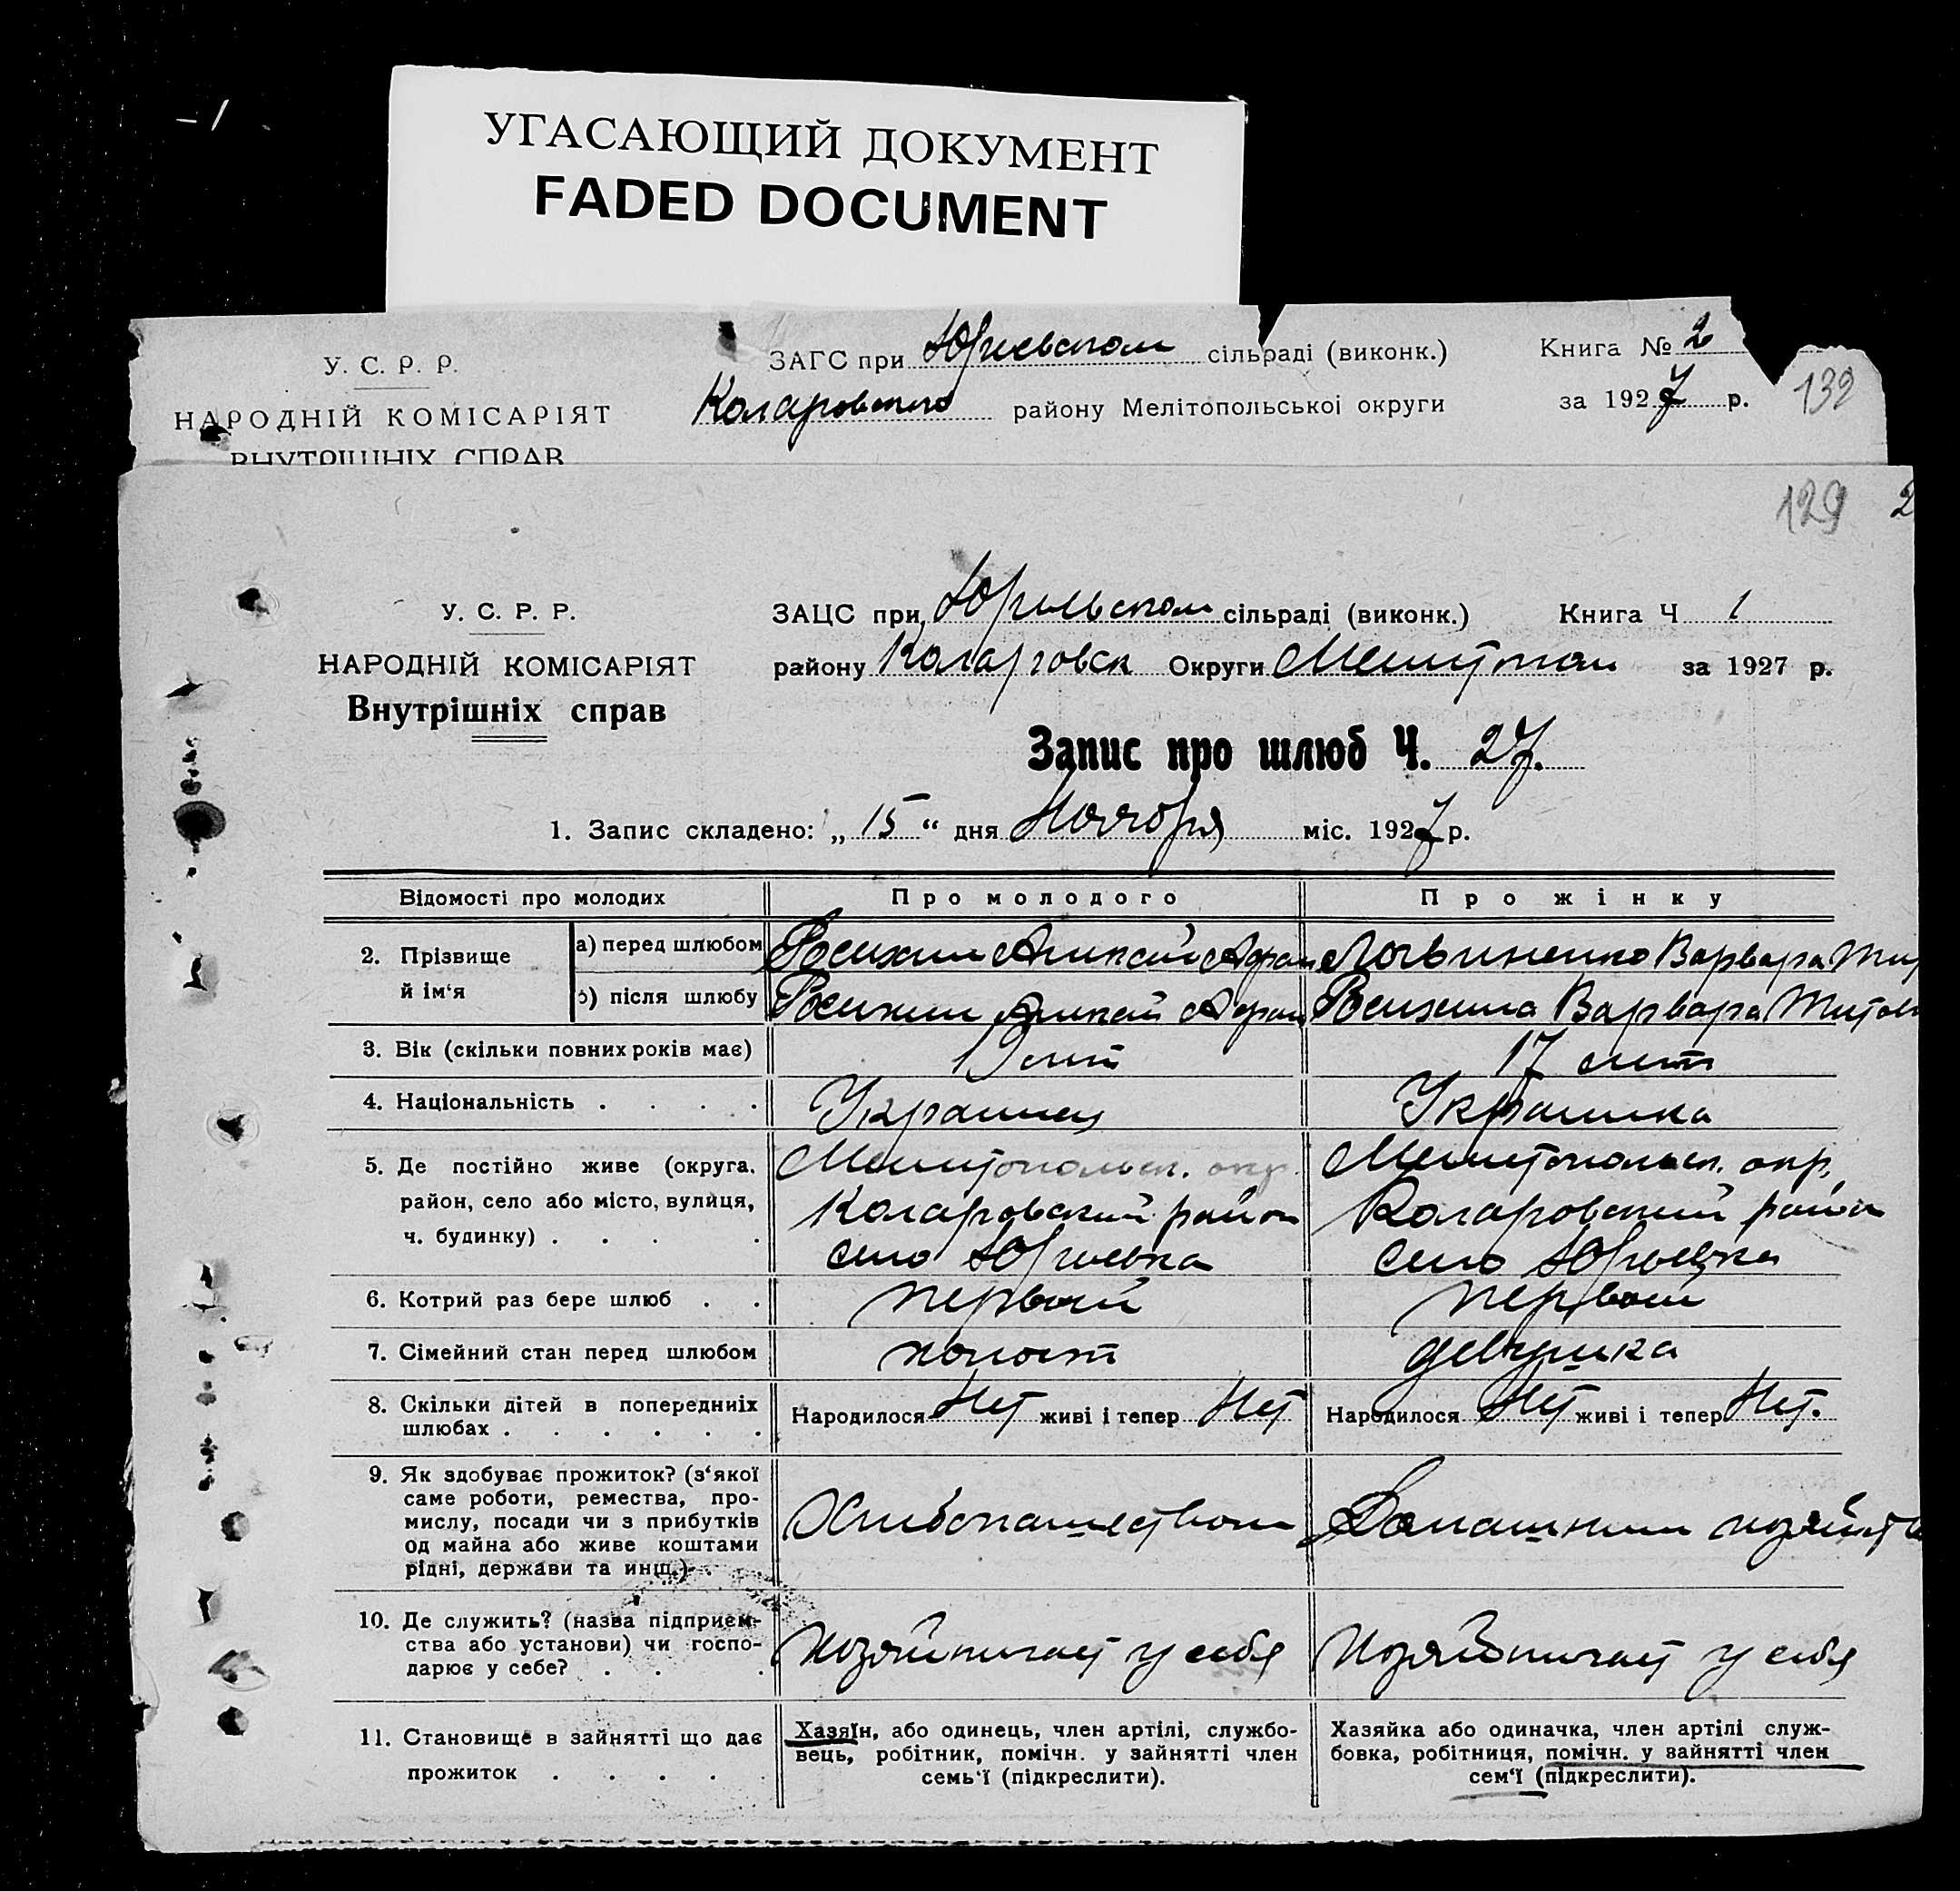 – 1
УГАСАЮЩИЙ ДОКУМЕНТ
FADED DOCUMENT
У. С. Р. Р.
НАРОДНІЙ КОМІСАРІЯТ
ВНУТРІШНІХ СПРАВ
ЗАГС при Юрьевском сільраді (виконк.)
Коларовского району Мелітопольської округи
Книга № 2
за 1927 р.
132
129
2
У. С. Р. Р.
НАРОДНІЙ КОМІСАРІЯТ
Внутрішніх справ
ЗАЦС при Юрьевском сільраді (виконк.) Книга Ч 1
району Коларовск Округи Мелитопол за 1927 р.
Запис про шлюб Ч. 27.
1. Запис складено: „ 15 “ дня Ноября міс. 1927 р.
Відомості про молодих
Про молодого
Про жінку
2. Прізвище й ім‘я
а) перед шлюбом
Алексей
Логвиненко Варвара Тит
б) після шлюбу
Алексей
Варвара Титов
3. Вік (скільки повних років має)
19 лет
17 лет
4. Національність . . . .
Украинец
Украинка
5. Де постійно живе (округа,
район, село або місто, вулиця,
ч. будинку) . . . .
Мелитопольск. окр.
Коларовский район
село Юрьевка
Мелитопольск. окр.
Коларовский район
село Юрьевка
6. Котрий раз бере шлюб . .
первый
первый
7. Сімейний стан перед шлюбом
холост
девушка
8. Скільки дітей в попередниіх
шлюбах . . . . . .
Народилося Нет живі і тепер Нет
Народилося Нет живі і тепер Нет.
9. Як здобуває прожиток? (з‘якої
саме роботи, ремества, про-
мислу, посади чи з прибутків
од майна або живе коштами
рідні, держави та инш.) .
Хлебопашеством
Домашним хозяйств
10. Де служить? (назва підприєм-
ства або установи) чи госпо-
дарює у себе? . . .
Хозяйничает у себя
Хозяйничает у себя
11. Становище в зайнятті що дає
прожиток . . . . .
Хазяїн, або одинець, член артілі, службо-
вець, робітник, помічн. у зайнятті член
семь‘ї (підкреслити).
Хазяйка або одиначка, член артілі служ-
бовка, робітниця, помічн. у зайнятті член
сем‘ї (підкреслити).